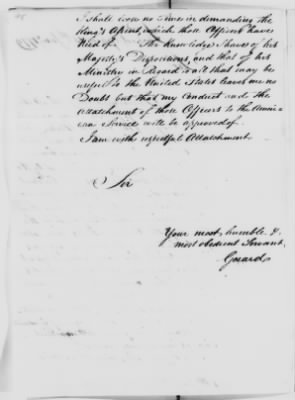 I shall loose no time in demanding the
King's Assent, which those Officers have
Need of. The Knowledge I have of his
Majesty's Dispositions, and that of his
Ministry in Regard to all that may be
useful to the United States leave me no
Doubt but that my Conduct and the
Attachment of those Officers to the Ameri-
can Service will be approved of.
I am with respectful Attachment
Sir
Your most humble &
most obedient Servant,
Gerard